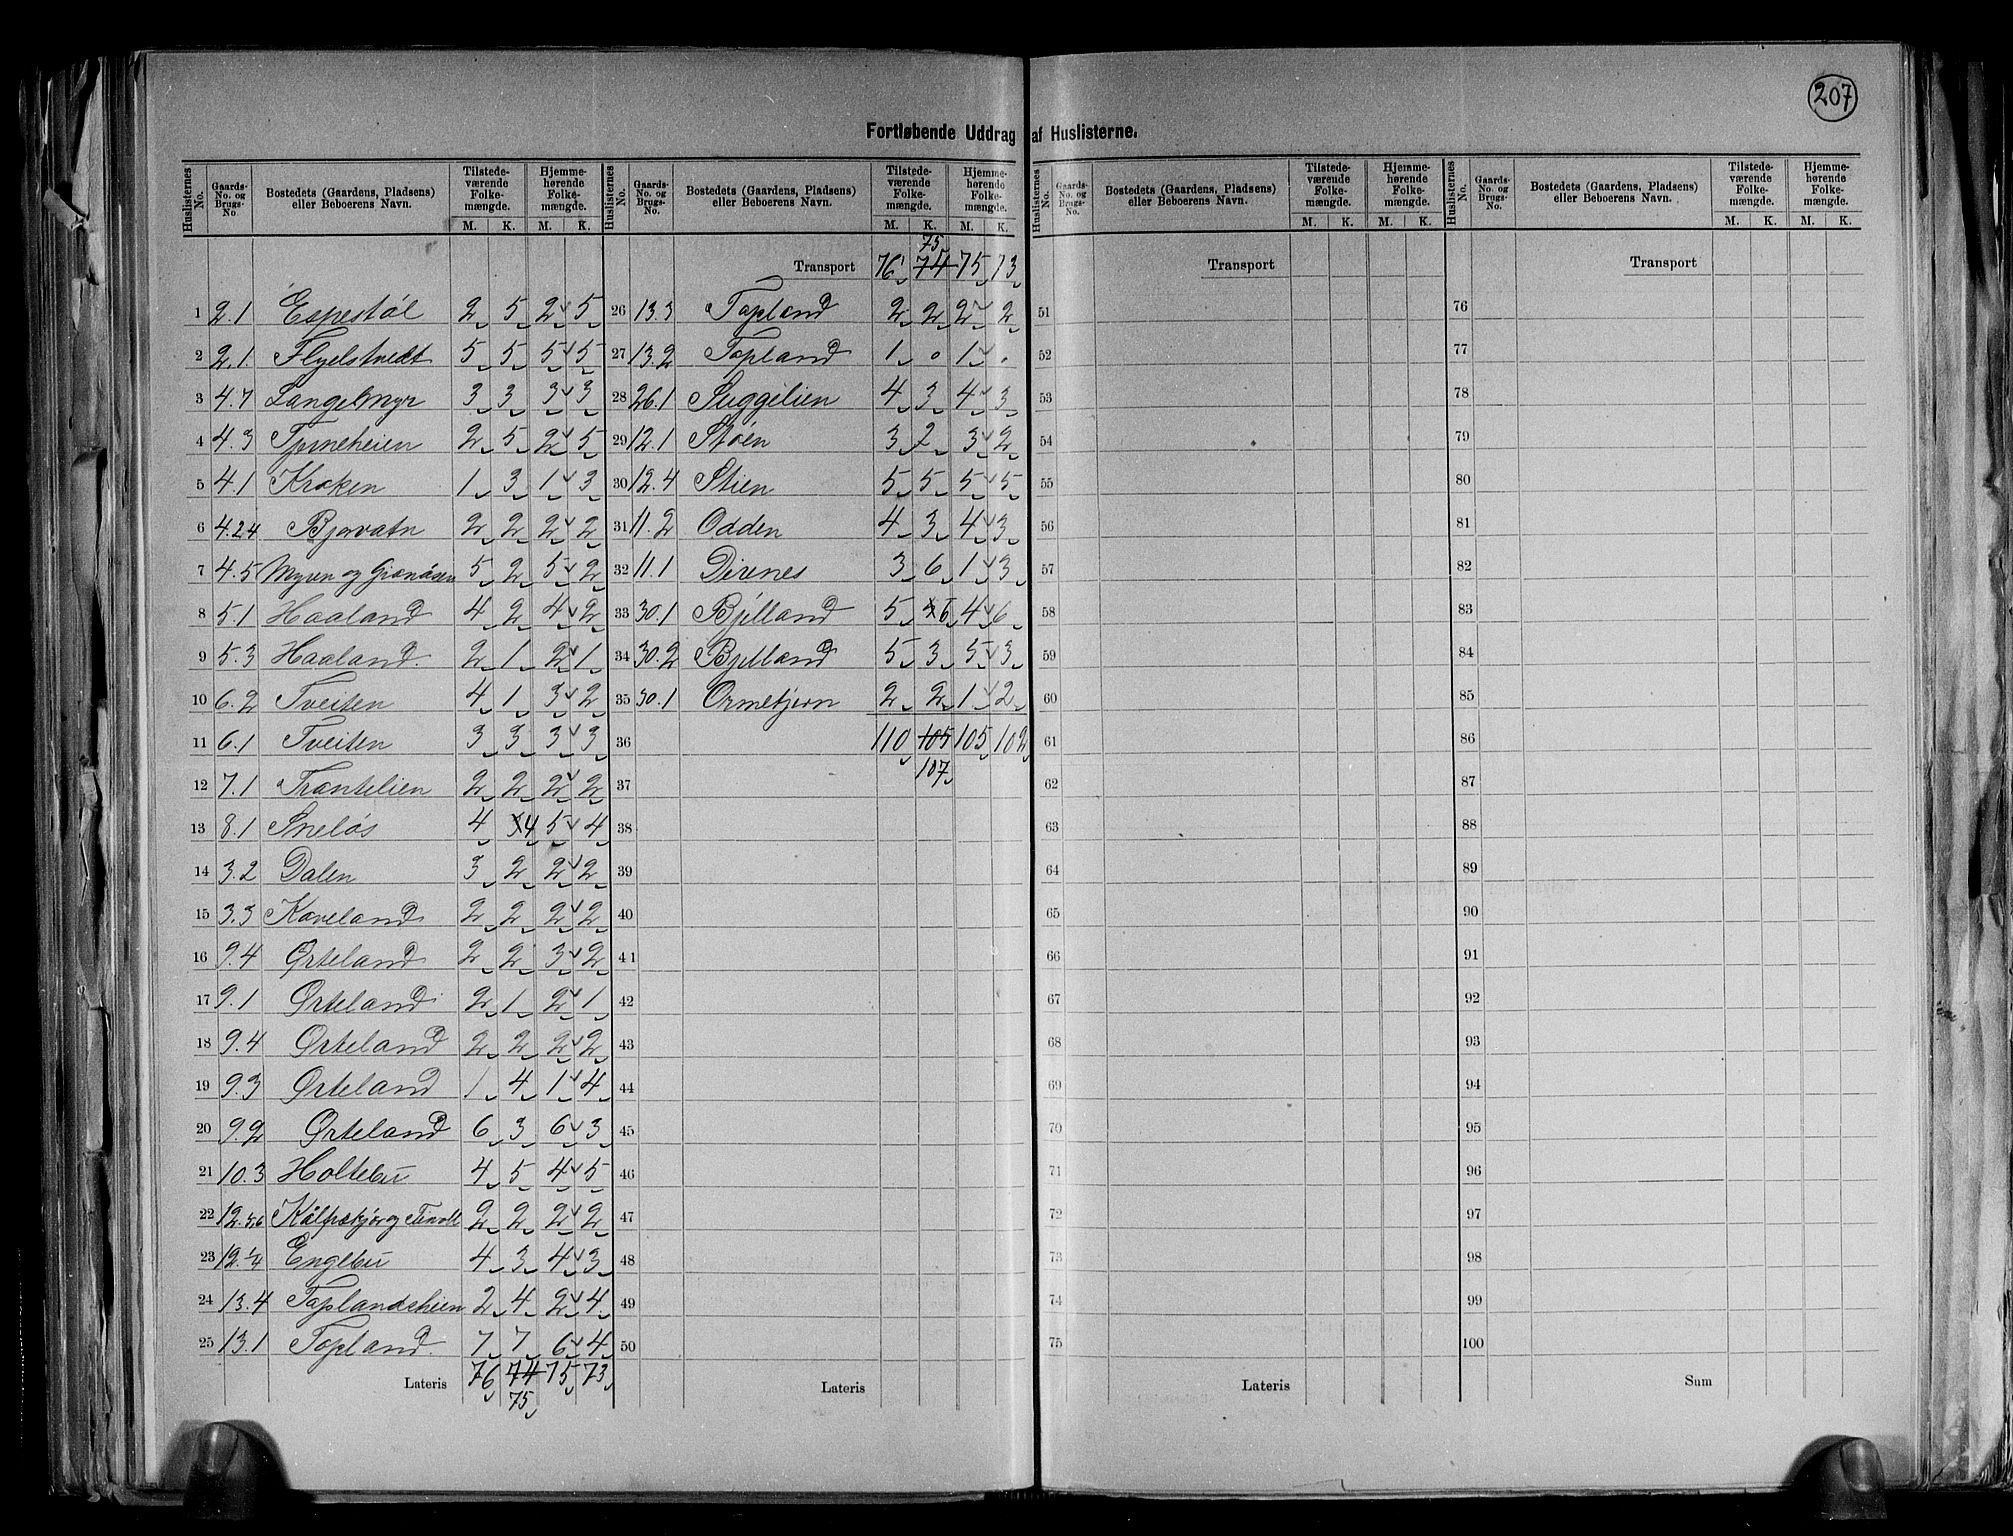 207
Fortløbende Uddrag af Huslisterne.
Huslisternes No. Gaards-No. og Brugs-No. Bostedets (Gaardens, Pladsens) eller Beboerens Navn. Tilstedeværende Folkemængde. Hjemmehørende Folkemængde.
M. K. M. K.
1 2.1 Espestøl 2 5 2 5
2 2.1. Flyelstvedt 5 5 5 5
3 4.7 Langelmyr 3 3 3 3
4 4.3 2 5 2 5
5 4.1 Kroken 1 3 1 3
6 4.24 Bjorvatn 2 2 2 2
7 4.5 Myren og Grønåsen 5 2 5 2
8 5.1 Haaland 4 2 4 2
9 5.3 Haaland. 2 1 2 1
10 6.2 Tveiten 4 1 3 2
11 6.1 Tveiten 3 3 3 3
12 7.1 Træntelien 2 2 2 2
13 8.1 Sneløs 4 4 5 4
14 3.2 Dalen 3 2 2 2
15 3.3 Kaveland 2 2 2 2
16 9.4 Ørteland 2 2 3 2
17 9.1 Ørteland 2 1 2 1
18 9.4 Ørteland 2 2 2 2
19 9.3 Ørteland 1 4 1 4
20 9.2 Ørteland 6 3 6 3
21 10.3 Holtebu 4 5 4 5
22 12.5,6 2 2 2 2
23 Engebu 4 3 4 3
24 13.4 Toplandsheien 2 4 2 4
25 13.1 Topland. 7 7 6 4
Lateris 76 74 75 73
75
Huslisternes No. Gaards-No. og Brugs-No. Bostedets (Gaardens, Pladsens) eller Beboerens Navn. Tilstedeværende Folkemængde. Hjemmehørende Folkemængde.
M. K. M. K.
75
Transport 76 74 75 73
26 13.3 Topland 2 2 2 2
27 13.2 Topland 1 0 1 .
28 26.1 Suggelien 4 3 4 3
29 12.1 Støen 3 2 3 2
30 12.4 Stien 5 5 5 5
31 11.2 Odden 4 3 4 3
32 11.1 Direnes 3 6 1 3
33 30.1 Bjelland 5 6 4 6
34 30.2 Bjelland 5 3 5 3
35 30.1 Ormekjern 2 2 1 2
36 110 105 105 102
107
37
38
39
40
41
42
43
44
45
46
47
48
49
50
Lateris
Huslisternes No. Gaards-No. og Brugs-No. Bostedets (Gaardens, Pladsens) eller Beboerens Navn. Tilstedeværende Folkemængde. Hjemmehørende Folkemængde.
M. K. M. K.
Transport
51
52
53
54
55
56
57
58
59
60
61
62
63
64
65
66
67
68
69
70
71
72
73
74
75
Lateris
Huslisternes No. Gaards-No. og Brugs-No. Bostedets (Gaardens, Pladsens) eller Beboerens Navn. Tilstedeværende Folkemængde. Hjemmehørende Folkemængde.
M. K. M. K.
Transport
76
77
78
79
80
81
82
83
84
85
86
87
88
89
90
91
92
93
94
95
96
97
98
99
100
Sum